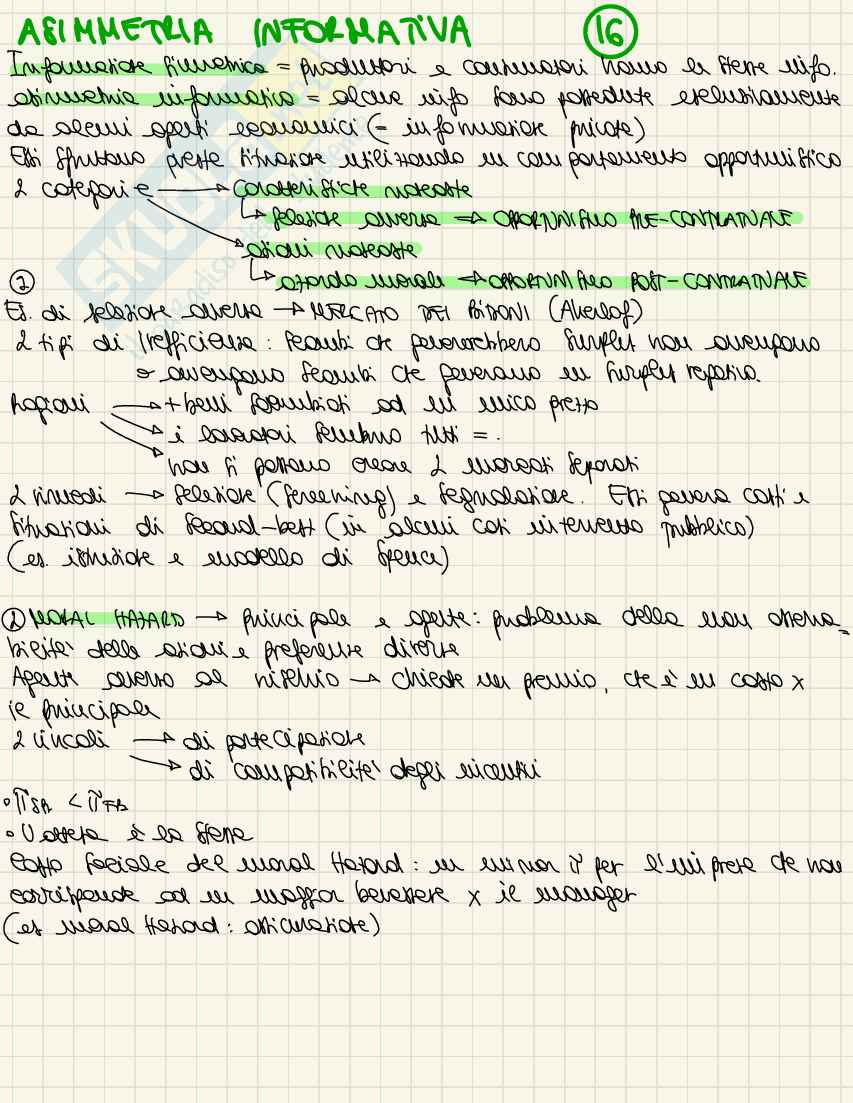 ASIMMETRIA INFORMATIVA 16
Informazione simmetrica = produttori e consumatori hanno le stesse info.
asimmetria informativa = alcune info sono possedute esclusivamente
da alcuni agenti economici (= informazione privata)
Essi sfruttano queste situazione utilizzando un comportamento opportunistico
2 categorie → caratteristiche nascoste
↳ selezione avversa ⇒ OPPORTUNISMO PRE-CONTRATTUALE
azioni nascoste
↳ azzardo morale ⇒ OPPORTUNISMO POST-CONTRATTUALE
①
Es. di selezione avversa → MERCATO DEI BIDONI (Akerlof)
2 tipi di inefficienza: scambi che genererebbero surplus non avvengono
o avvengono scambi che generano un surplus negativo.
Ragioni → + beni scambiati ad un unico prezzo
→ i lavoratori sembrano tutti =.
→ non si possono creare 2 mercati separati
2 rimedi → selezione (screening) e segnalazione. Essi genera costi e
situazioni di second-best (in alcuni casi intervento pubblico)
(es. istruzione e modello di Spence)
② MORAL HAZARD → principale e agente: problema della non osserva=
bilità delle azioni e preferenze diverse
Agente avverso al rischio → chiede un premio, che è un costo x
il principale
2 vincoli → di partecipazione
→ di compatibilità degli incentivi
• πSB < πFB
• U attesa è la stessa
Costo sociale del moral hazard: un minor π per l'impresa che non
corrisponde ad un maggior benessere x il manager
(es moral hazard: assicurazione)
SKUOLA